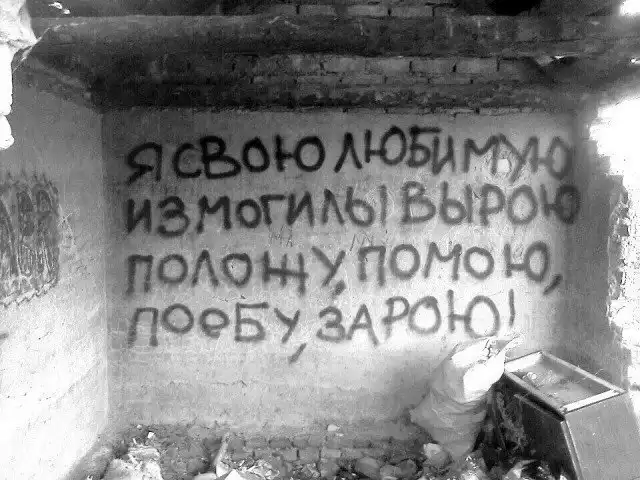 Я СВОЮ ЛЮБИМУЮ
ИЗ МОГИЛЫ ВЫРОЮ
ПОЛОЖУ, ПОМОЮ,
ПОЕБУ, ЗАРОЮ!